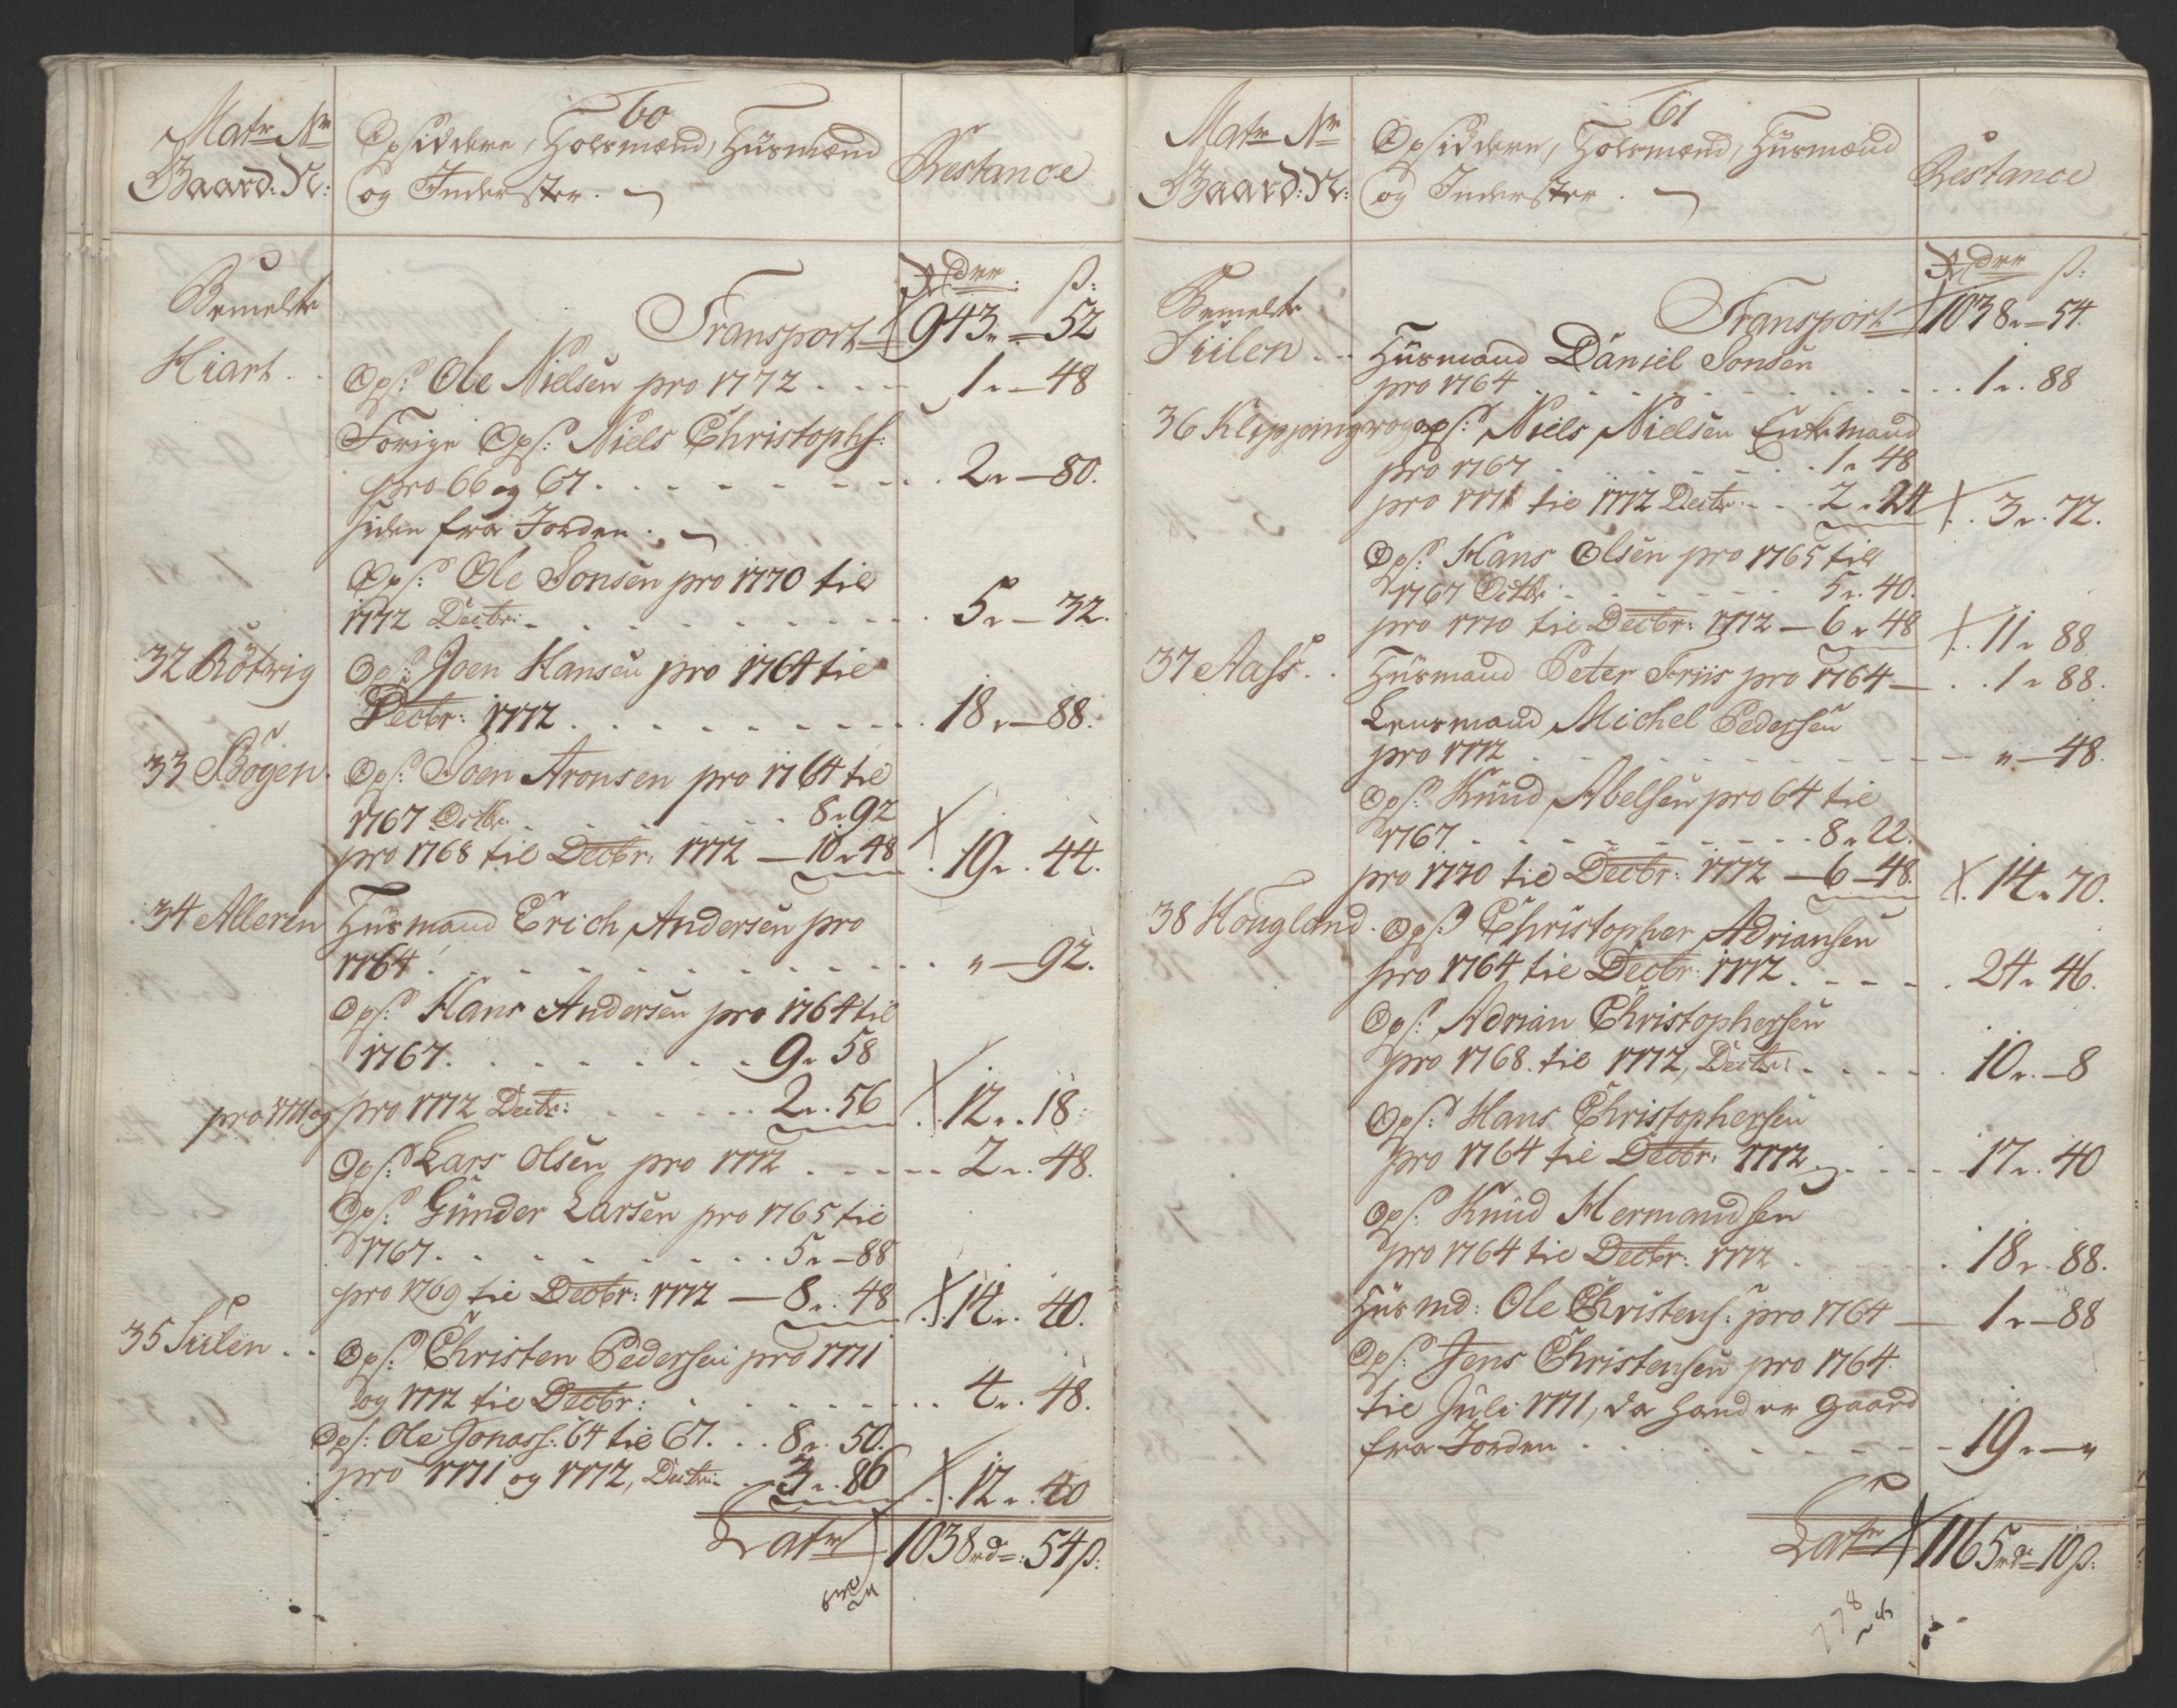 60
Matr Nr
Gaard: N:
Opsiddere, Holsmænd, Huusmænd
og Inderster.
Restance
Rdr: ß:
Bemelte
Transport 943 „ 52
Hiart . .
Ops: Ole Nielsen pro 1772 . . . 1 „ 48
Forige Ops: Niels Christophs:
pro 66 og 67 . . . . . . . . . 2 „ 80.
siden fra Jorden.
Ops: Ole Jonsen pro 1770 til
1772 Decbr: . . . . . . . . 5 „ 32.
32 Bötvig Ops: Joen Hansen pro 1764 til
Decbr: 1772 . . . . . . . . . 18 „ 88.
33 Bögen. Ops: Joen Aronsen pro 1764 til
1767 Octbr. . . . . . . . 8 „ 92
pro 1768 til Decbr: 1772 — 10 „ 48 . 19 „ 44.
34 Alleren Huusmand Erich Andersen pro
1764 . . . . . . . . . . . . . „ — 92.
Ops: Hans Andersen pro 1764 til
1767. . . . . . . 9 „ 58
pro 1771 og pro 1772 Decbr: . . . . . 2 „ 56 . 12 „ 18.
Ops: Lars Olsen pro 1772 . . . . . 2 „ 48.
Ops: Gunder Larsen pro 1765 til
1767. . . . . . . . . 5 „ 88
pro 1769 til Decbr: 1772 — 8 „ 48 . 14 „ 40.
35 Sülen . . Ops: Christen Pedersen pro 1771
og 1772 til Decbr: . . . . . . . . 4 „ 48.
Ops: Ole Jonass: 64 til 67. . . 8 „ 50.
pro 1771 og 1772, Decbr: . 3 „ 86 . . 12 „ 40
Latr 1038 rd: 54 ß:
61
Matr Nr
Gaard: N:
Opsiddere, Holsmænd, Huusmænd
og Inderster.
Restance
Rdr ß:
Bemelte
Transport 1038 „ 54.
Sülen . . Huusmand Daniel Jonsen
pro 1764 . . . . . . . . . . . 1 „ 88
36 Klippingvog Ops: Niels Nielsen Enkemand
pro 1767 . . . . . . . 1 „ 48
pro 1771 til 1772 Decbr: . . . 2 „ 24 . . 3 „ 72.
Ops: Hans Olsen pro 1765 til
1767 Octbr: . . . . . . 5 „ 40.
pro 1770 til Decbr: 1772 — 6 „ 48 . . 11 „ 88
37 Aass . . Huusmand Peter Friis pro 1764 — . . 1 „ 88.
Lensmand Michel Pedersen
pro 1772 . . . . . . . . . . . „ — 48.
Ops: Knud Abelsen pro 64 til
1767 . . . . . . . . . . 8 „ 22.
pro 1770 til Decbr: 1772 — 6 — 48. . 14 „ 70.
38 Hougland. Ops: Christopher Adriansen
pro 1764 til Decbr: 1772 . . . . . 24 „ 46.
Ops: Adrian Christophersen
pro 1768. til 1772, Decbr: . . . . . 10 „ 8
Ops: Hans Christophersen
pro 1764 til Decbr: 1772 . . . . . 17 „ 40
Ops: Knud Hermandsen
pro 1764 til Decbr: 1772 . . . 18 „ 88.
Huusmd: Ole Christens: pro 1764 — 1 „ 88
Ops: Jens Christensen pro 1764.
til Juli 1771, da hand er gaard
fra Jorden . . . . . . . . . 19 „ — „
Latr 1165 rd: 10 ß:
778